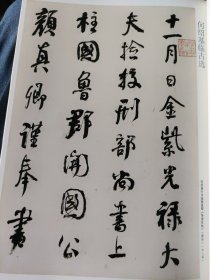 何绍基临古选
十一月日金紫光禄大
夫检挍刑部尚書上
柱國魯郡開國公
顏真卿謹奉書